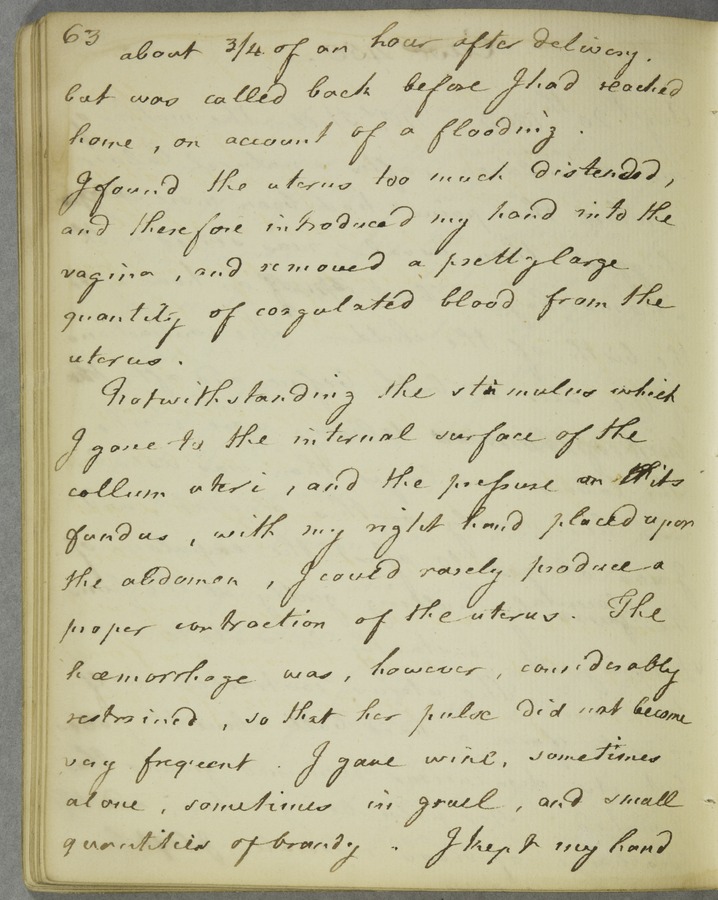 63
about 3/4 of an hour after delivery.
but was called back before I had reached
home, on account of a flooding.
I found the uterus too much distended,
and therefore introduced my hand into the
vagina, and removed a pretty large
quantity of coagulated blood from the
uterus.
Notwithstanding the stimulus which
I gave to the internal surface of the
collum uteri, and the pressure on its
fundus, with my right hand placed upon
the abdomen, I could rarely produce a
proper contraction of the uterus. The
hæmorrhage was, however, considerably
restrained, so that her pulse did not become
very frequent. I gave wine, sometimes
alone, sometimes in gruel, and small
quantities of brandy. I kept my hand